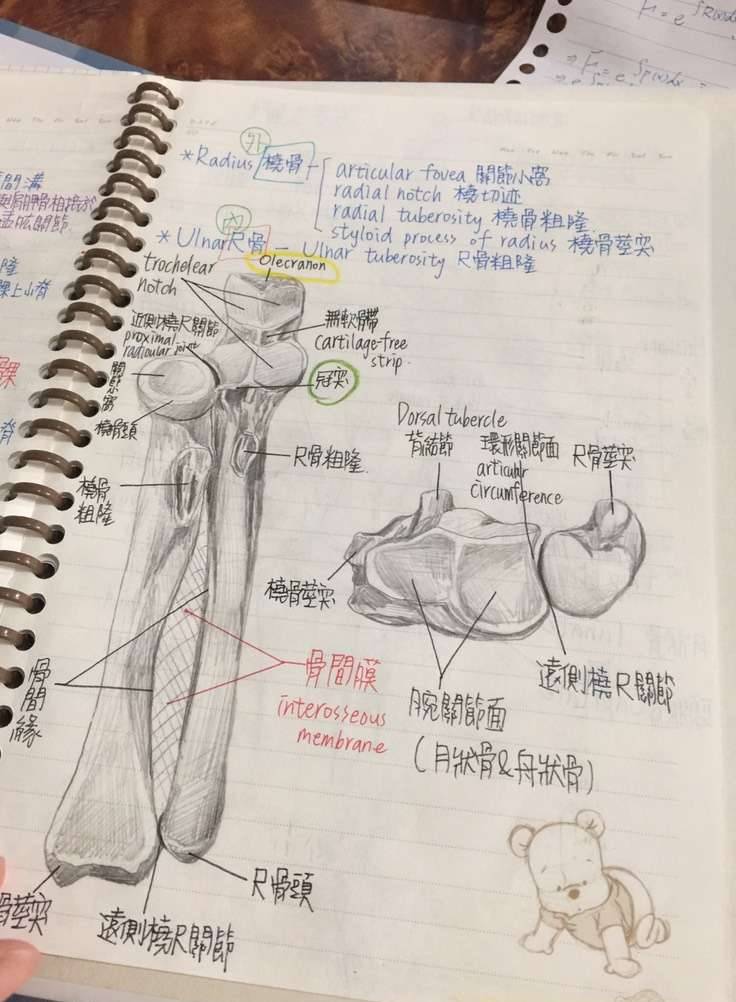 μ = e^∫P(x)dx
⇒ μ = e^∫P(x)dx
間溝
與肩胛骨相接於
盂肱關節
隆
髁上小脊
髁
脊
外
*Radius 橈骨
articular fovea 關節小窩
radial notch 橈切迹
radial tuberosity 橈骨粗隆
styloid process of radius 橈骨莖突
內
* Ulnar 尺骨 — Ulnar tuberosity 尺骨粗隆
Olecranon
trochelear
notch
近側橈尺關節
proximal
radioular joint
無軟骨帶
cartilage-free
strip.
冠突
橈骨頭
橈骨
粗隆
尺骨粗隆
Dorsal tubercle
背結節
環形關節面
articular
circumference
尺骨莖突
橈骨莖突
骨間膜
interosseous
membrane
腕關節面
(月狀骨&舟狀骨)
遠側橈尺關節
骨
間
緣
尺骨頭
骨莖突
遠側橈尺關節